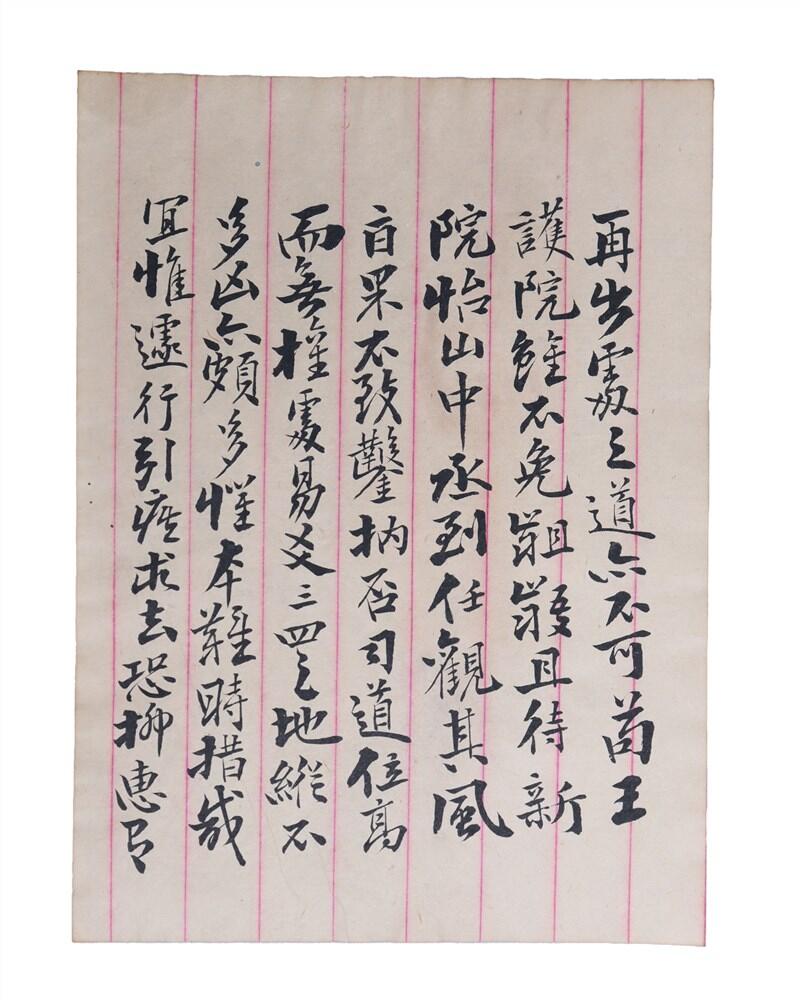 再出處之道亦不可苟王
護院雖不免齟齬且待新
院怡山中丞到任觀其風
旨果不致鑿枘否司道位高
而無權處易爻三四之地縱不
多凶亦頗多懼本難時措咸
宜惟遽行引疾求去恐柳惠